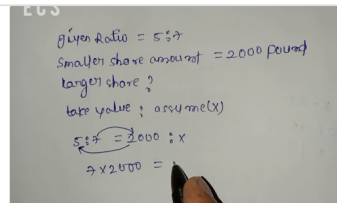 ECS
given Ratio = 5:7
Smaller share amount = 2000 pound
larger share ?
take value : assume(x)
5:7 = 2000 : x
7 x 2000 =